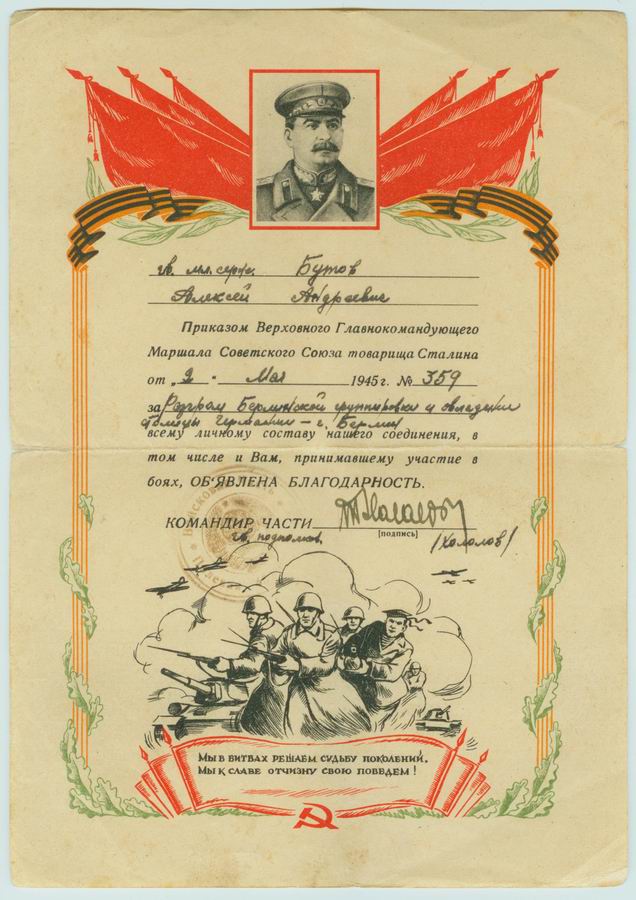 гв. мл. серж. Бутов
Алексей Андреевич
Приказом Верховного Главнокомандующего
Маршала Советского Союза товарища Сталина
от „2" Мая 1945 г. № 359
за Разгром Берлинской группировки и овладение
столицы Германии – г. Берлин
всему личному составу нашего соединения, в
том числе и Вам, принимавшему участие в
боях, ОБ'ЯВЛЕНА БЛАГОДАРНОСТЬ.
КОМАНДИР ЧАСТИ
[подпись]
гв. подполков.
Войсковая часть
Полевая
МЫ В БИТВАХ РЕШАЕМ СУДЬБУ ПОКОЛЕНИЙ,
МЫ К СЛАВЕ ОТЧИЗНУ СВОЮ ПОВЕДЕМ!